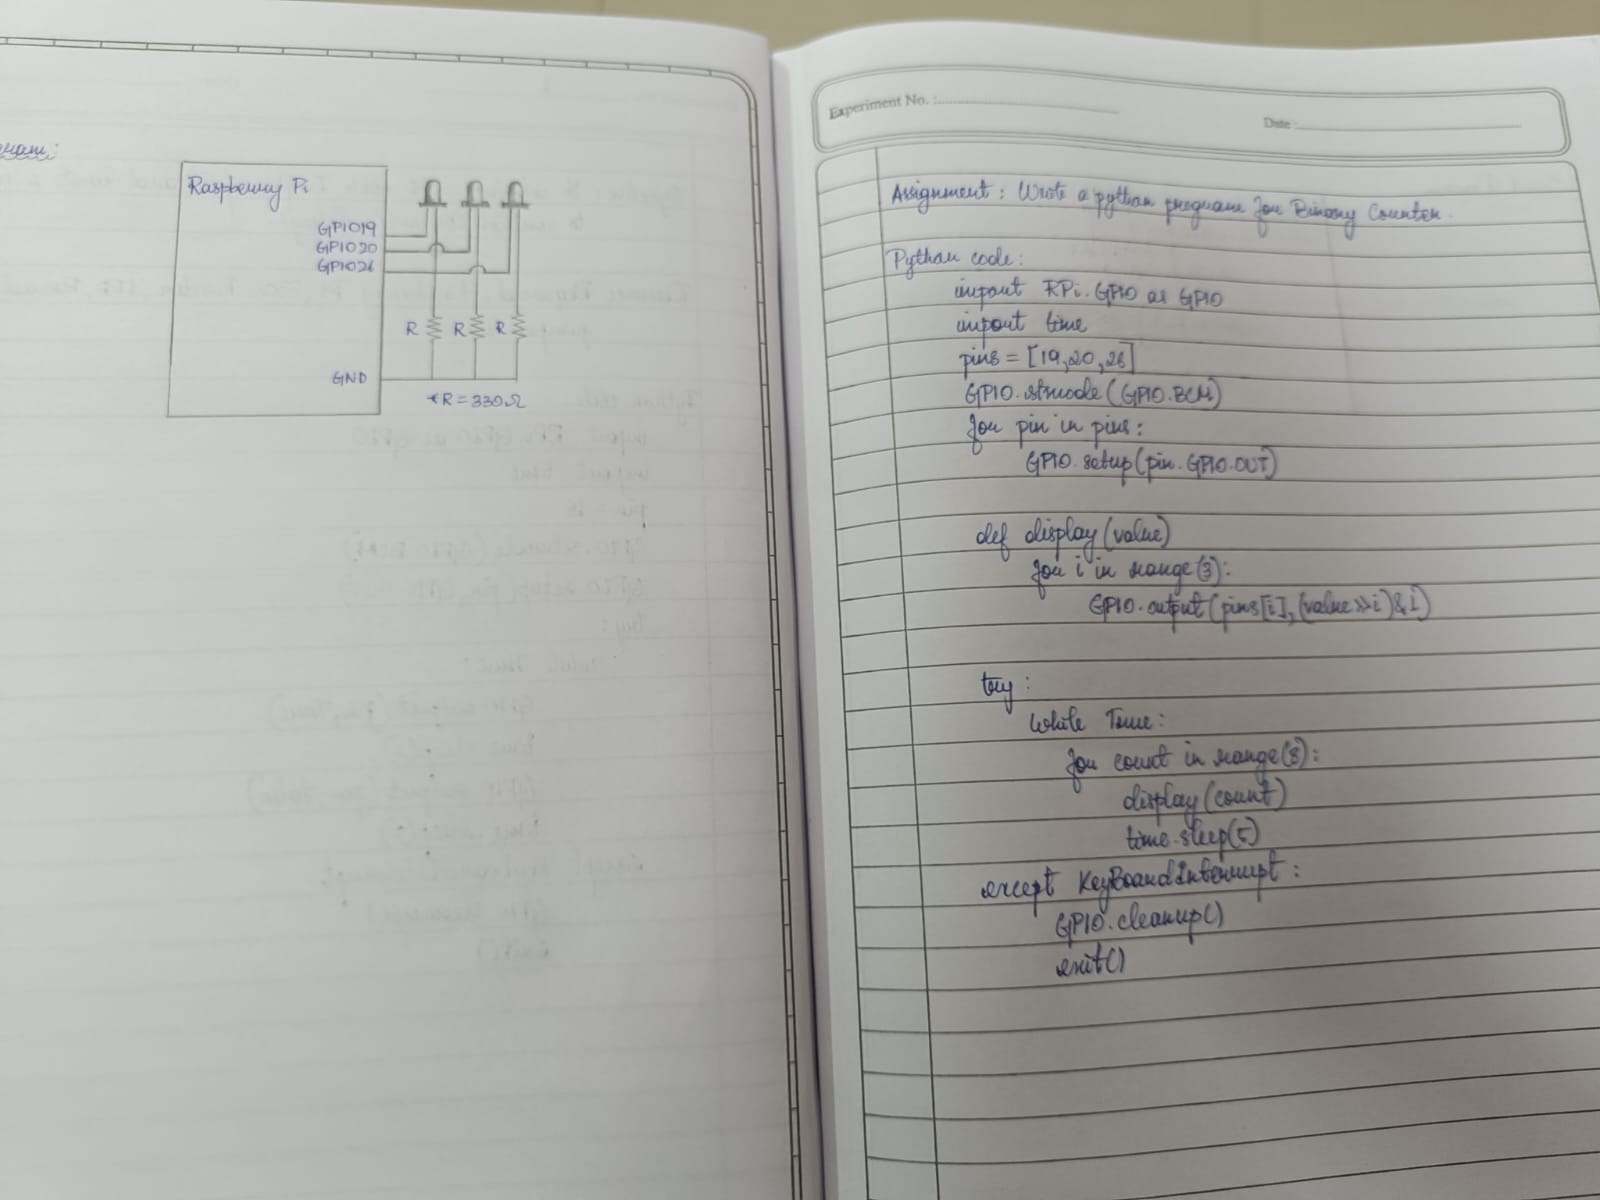 Raspberry Pi
GPIO19
GPIO20
GPIO26
R R R
GND
*R = 330Ω
Experiment No. :
Date :
Assignment : Wrote a python program for Binary Counter.
Python code :
import RPi.GPIO as GPIO
import time
pins = [19,20,26]
GPIO.setmode(GPIO.BCM)
for pin in pins :
GPIO.setup(pin.GPIO.OUT)
def display(value)
for i in range(3):
GPIO.output(pins[i],(value>>i)&1)
try :
While True :
for count in range(8):
display(count)
time.sleep(5)
except KeyBoardInterrupt :
GPIO.cleanup()
exit()